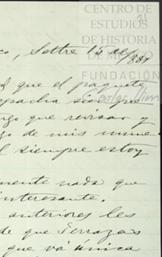 CENTRO DE
ESTUDIOS
DE HISTORIA
DE MÉXICO
FUNDACIÓN
Carlos Slim
co, Settre 15 de/889
d que el paquete
que
rigo que revisar y
jo de mis nume
el siempre estoy
mente nada que
interesante.
anteriores les
de que Terrazas
que vá única